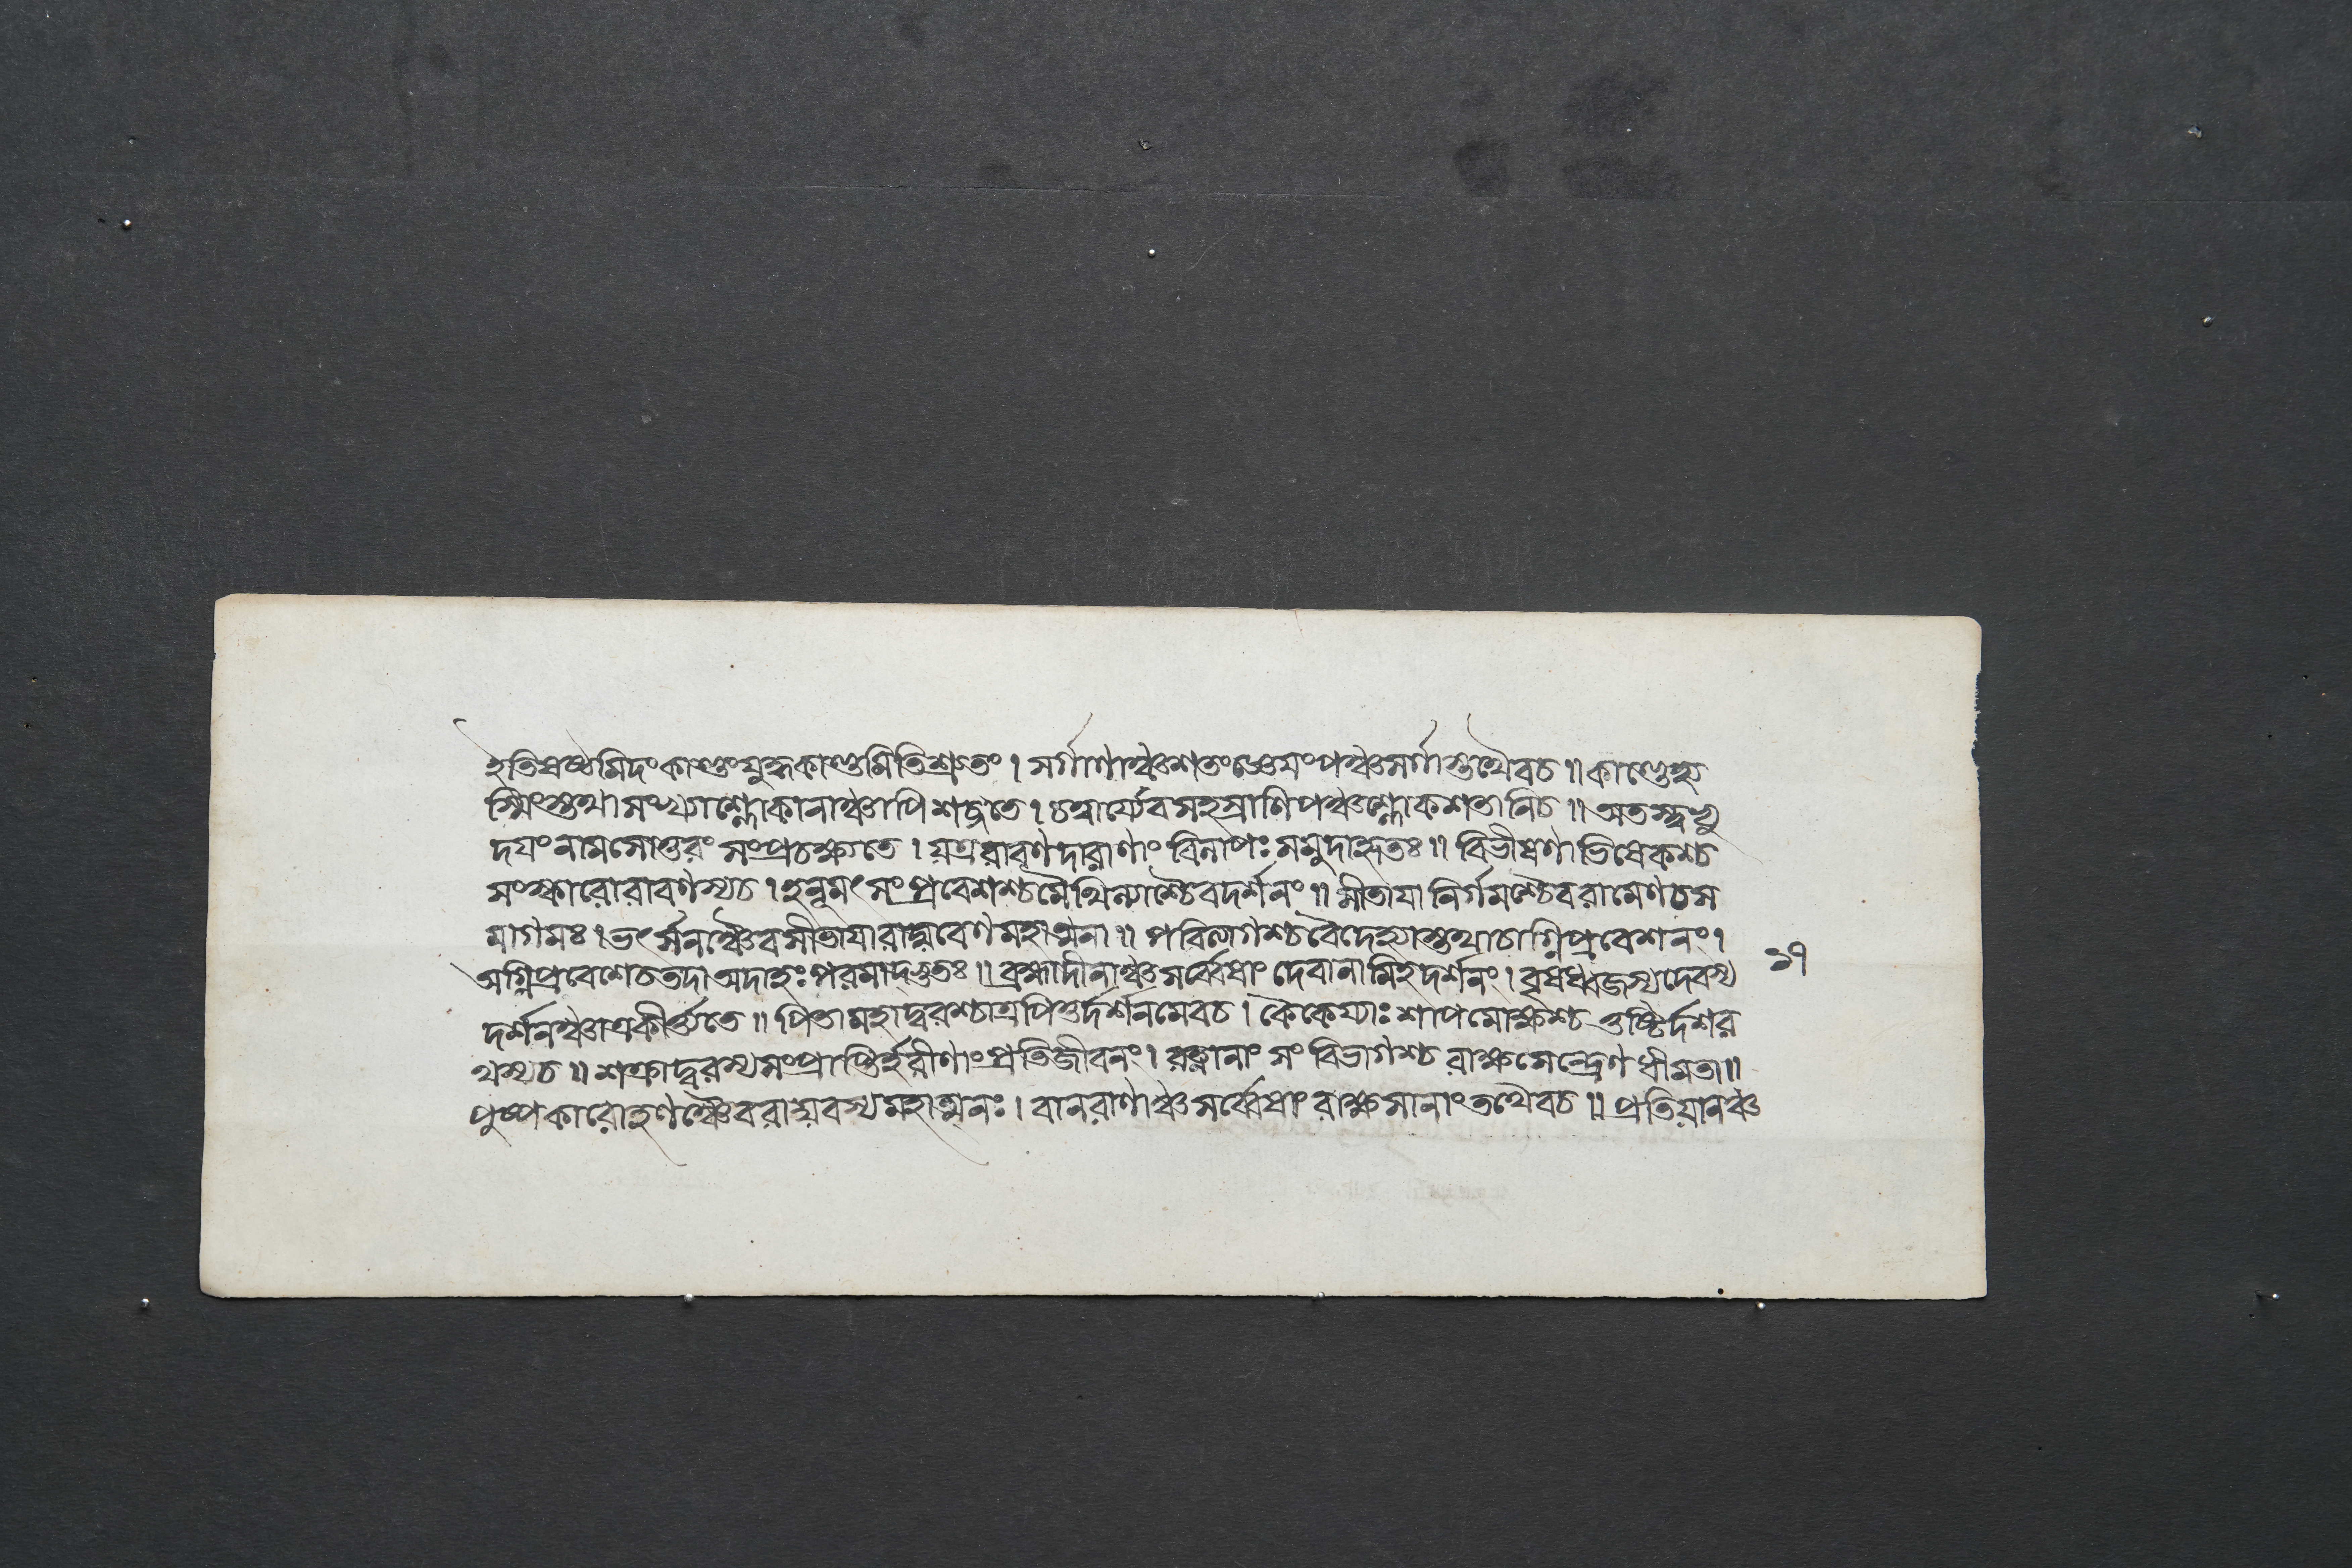 ইতিষষ্ঠমিদংকাণ্ডংযুদ্ধকাণ্ডমিতিশ্রুতং। সর্গাণাঞ্চশতংজ্ঞেয়ংপঞ্চসর্গাস্তথৈবচ॥ কাণ্ডেহ্য
স্মিংস্তথাসঙ্খ্যাশ্লোকানাঞ্চাপিশব্দ্যতে। চত্বার্য্যেবসহস্রাণিপঞ্চশ্লোকশতানিচ॥ অতস্ত্বভ্যু
দয়ংনামসোত্তরং সংপ্রচক্ষ্যতে। যত্ররাবণদারাণাং বিলাপঃ সমুদাহৃতঃ॥ বিভীষণাভিষেকশ্চ
সংস্কারোরাবণস্যচ। হনুমৎ সংপ্রবেশশ্চমৈথিল্যাশ্চৈবদর্শনং॥ সীতায়া নির্গমশ্চৈবরামেণচস
মাগমঃ। ভর্ৎসনঞ্চৈবসীতায়ারাঘবেণমহাত্মনা॥ পরিত্যাগশ্চবৈদেহ্যাস্তথাচাগ্নিপ্রবেশনং। ১৭
অগ্নিপ্রবেশেচতদাঅদাহঃপরমাদ্ভুতঃ॥ ব্রহ্মাদীনাঞ্চসর্ব্বেষাং দেবানামিহদর্শনং। বৃষধ্বজস্যদেবস্য
দর্শনঞ্চাত্রকীর্ত্ত্যতে॥ পিতামহাদ্বরশ্চাত্রপিতুর্দর্শনমেবচ। কৈকেয্যাঃ শাপমোক্ষশ্চ তুষ্টির্দশর
থস্যচ॥ শক্রাদ্বরস্যসংপ্রাপ্তির্হরীণাংপ্রতিজীবনং। রত্নানাং সংবিভাগশ্চ রাক্ষসেন্দ্রেণ ধীমতা॥
পুষ্পকারোহণঞ্চৈবরাঘবস্যমহাত্মনঃ। বানরাণাঞ্চসর্ব্বেষাং রাক্ষসানাংতথৈবচ॥ প্রতিযানঞ্চ